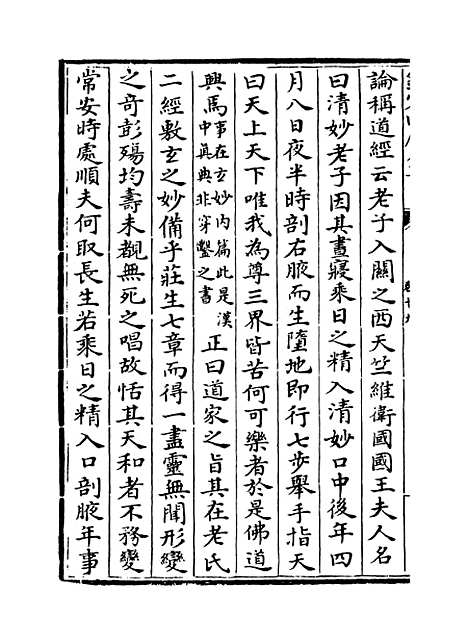 論稱道經云老子入關之西天竺維衛國國王夫人名
曰清妙老子因其晝寢乘日之精入清妙口中後年四
月八日夜半時剖右腋而生墮地即行七步舉手指天
曰天上天下唯我為尊三界皆苦何可樂者於是佛道
興焉事在玄妙内篇此是漢中真典非穿鑿之書正曰道家之旨其在老氏
二經敷玄之妙備乎莊生七章而得一盡靈無聞形變
之奇彭殤均壽未覩無死之唱故恬其天和者不務變
常安時處順夫何取長生若乘日之精入口剖腋年事